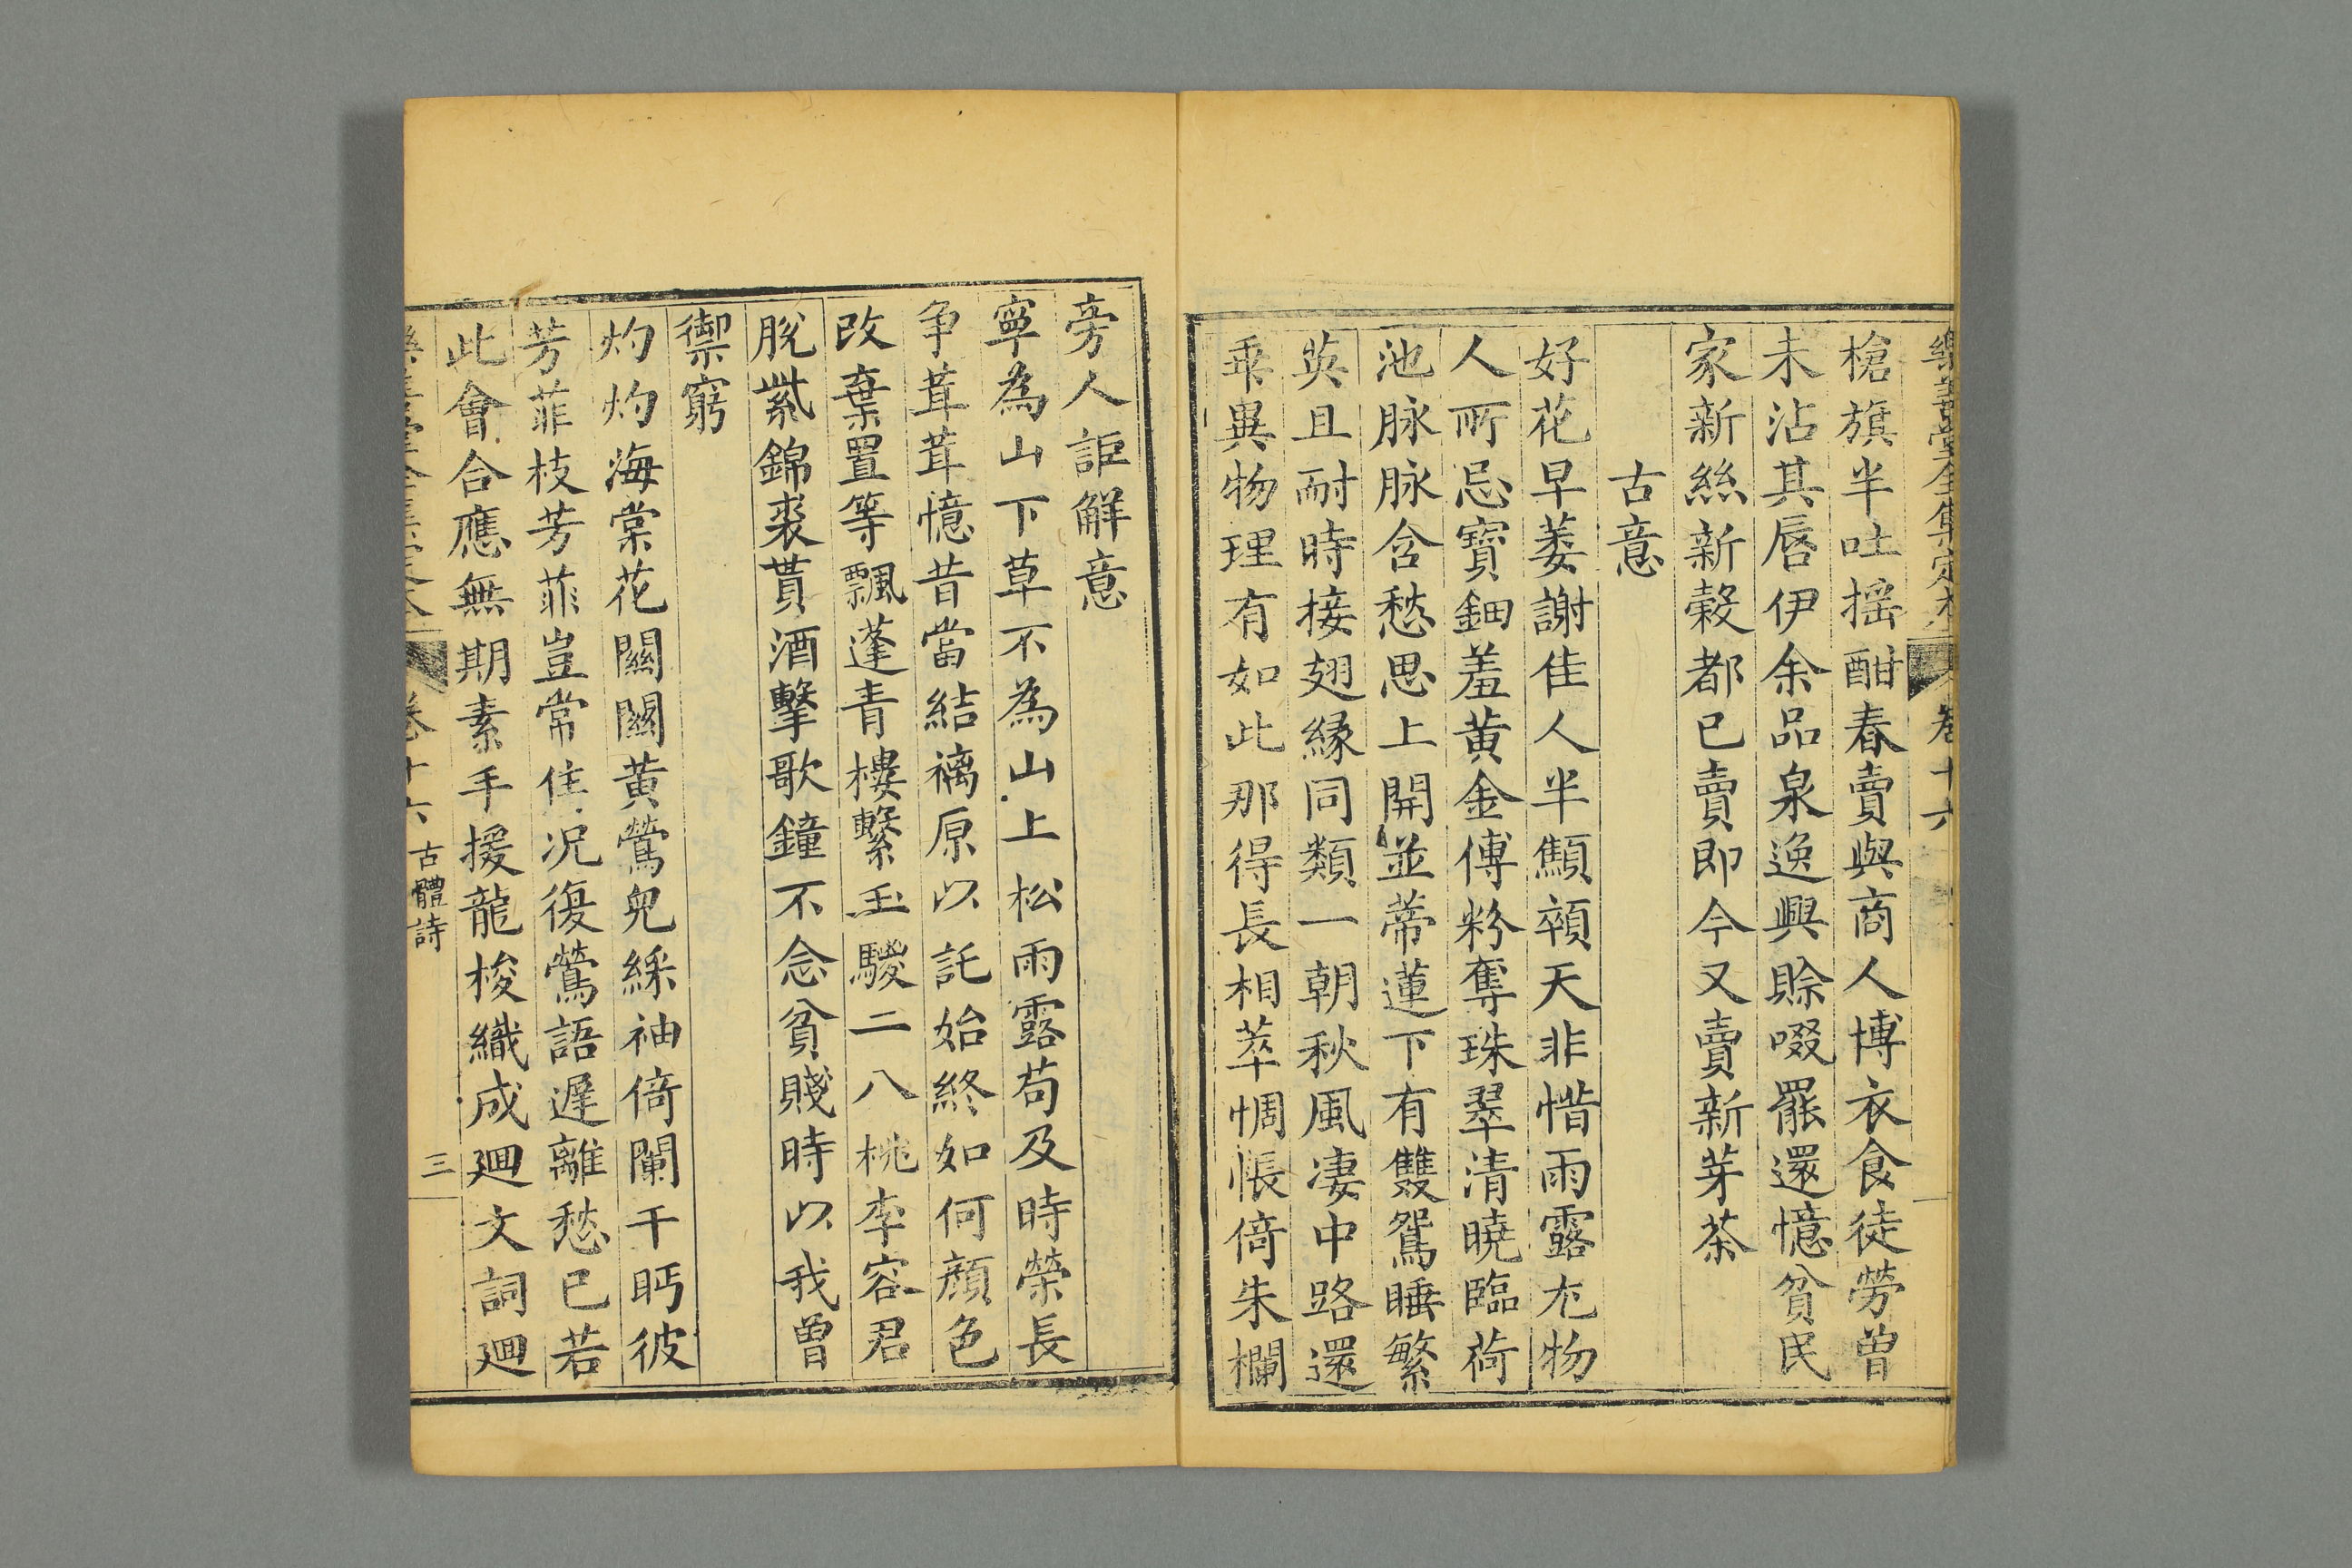 樂善堂全集定本 卷十六
槍旗半吐搖酣春賣與商人博衣食徒勞曾
未沾其唇伊余品泉逸興賒啜罷還憶貧民
家新絲新穀都已賣即今又賣新芽茶
古意
好花早萎謝佳人半顦顇天非惜雨露尤物
人所忌寶鈿羞黄金傅粉奪珠翠清曉臨荷
池脉脉含愁思上開並蒂蓮下有雙鴛睡繁
英且耐時接翅緣同類一朝秋風凄中路還
乖異物理有如此那得長相萃惆悵倚朱欄
旁人詎解意
寧為山下草不為山上松雨露苟及時榮長
争茸茸憶昔當結褵原以託始終如何顔色
改棄置等飄蓬青樓繫玉驄二八桃李容君
脫紫錦裘貰酒擊歌鐘不念貧賤時以我曾
禦窮
灼灼海棠花關關黄鶯兒綵袖倚闌干眄彼
芳菲枝芳菲豈常住況復鶯語遲離愁已若
此會合應無期素手援龍梭織成廻文詞廻
樂善堂全集定本 卷十六 古體詩 三